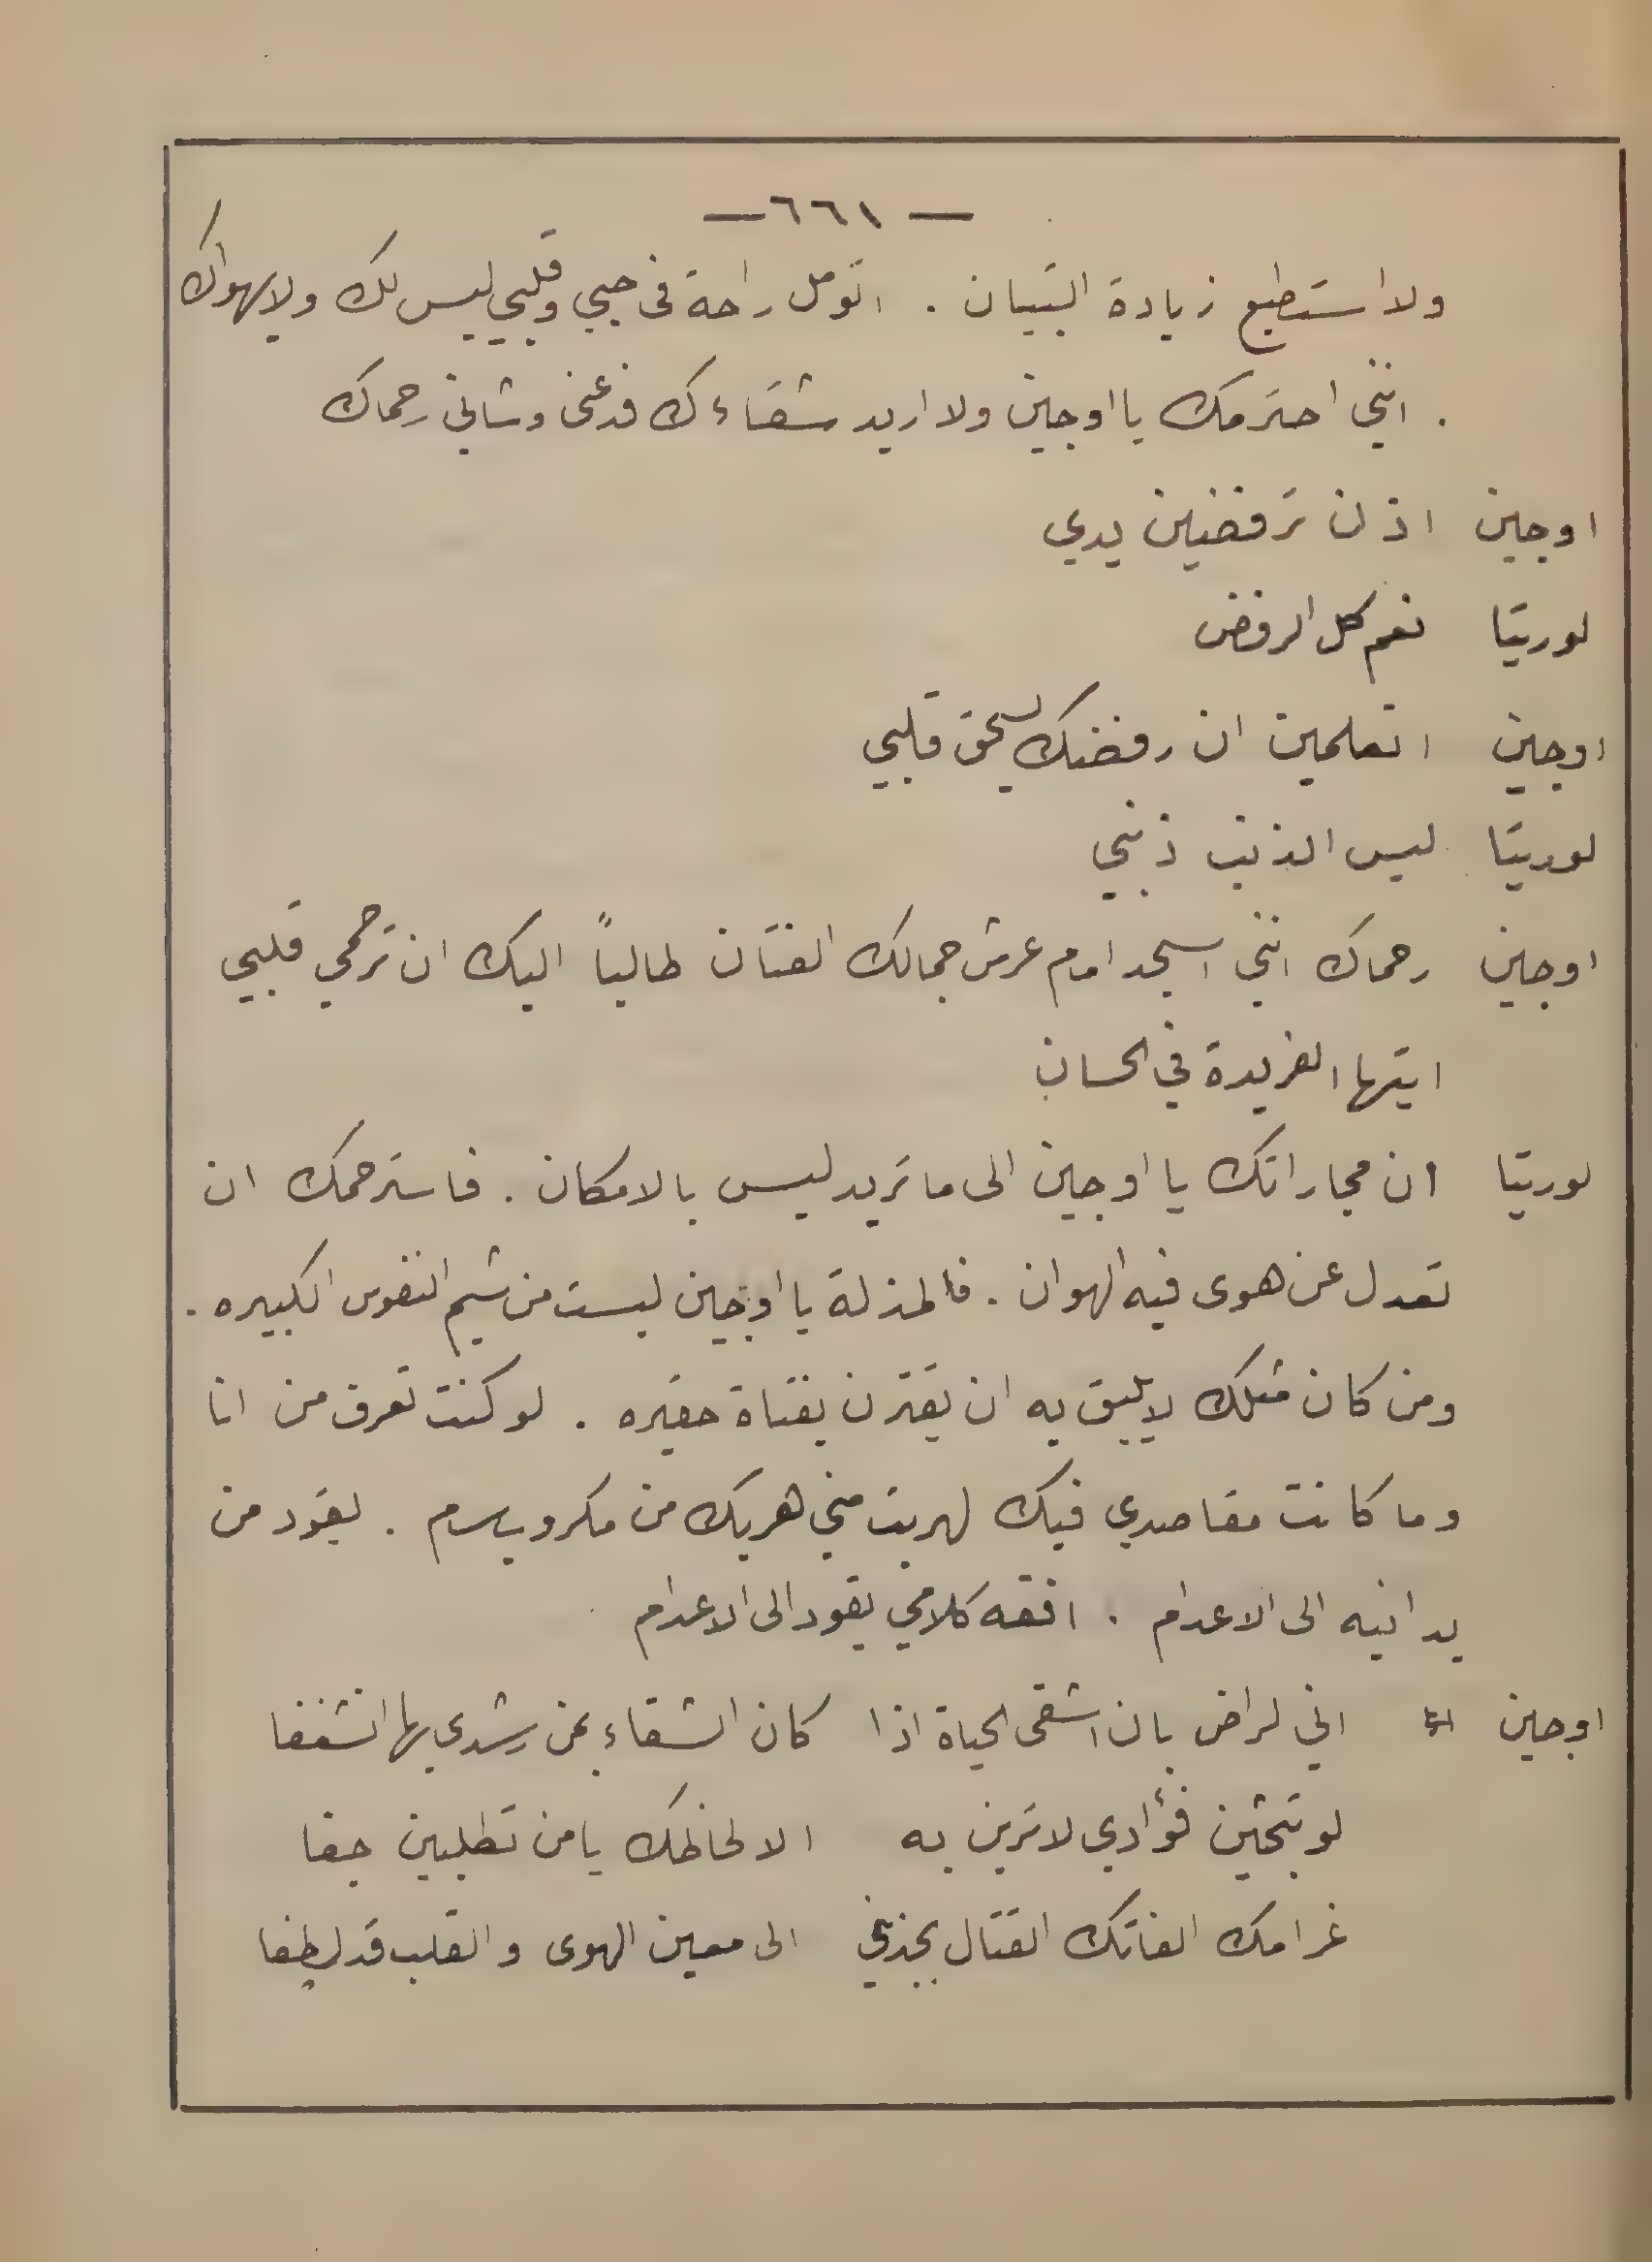 — ٦٦١ —
ولا استطيع زيادة التبيان . اتؤمل راحة في حبي وقلبي ليس لك ولا يهواك
. انني احترمك يا اوجين ولا اريد شقاءك فدعني وشاني رحماك
اوجين اذن ترفضين يدي
لوريتا نعم كل الرفض
اوجين اتعلمين ان رفضك يسحق قلبي
لوريتا ليس الذنب ذنبي
اوجين رحماك انني اسجد امام عرش جمالك الفتان طالباً اليك ان ترحمي قلبي
ايتها الفريدة في الحسان
لوريتا ان مجاراتك يا اوجين الى ما تريد ليس بالامكان . فاسترحمك ان
تعدل عن هوى فيه الهوان . فالمذلة يا اوجين ليست من شيم النفوس الكبيره .
ومن كان مثلك لا يليق به ان يقترن بفتاة حقيره . لو كنت تعرف من انا
وما كانت مقاصدي فيك لهربت مني هربك من مكروب سام . يقود من
يدانيه الى الاعدام . افقه كلامي يقود الى الاعدام
اوجين اني لراض بان اشقى الحياة اذا كان الشقاء بمن رشدي بها انشغفا
لو تبحثين فؤادي لا ترين به الا لحاظك يا من تطلبين جفا
غرامك الفاتك القتال يجذبني الى معين الهوى والقلب قد لطفا